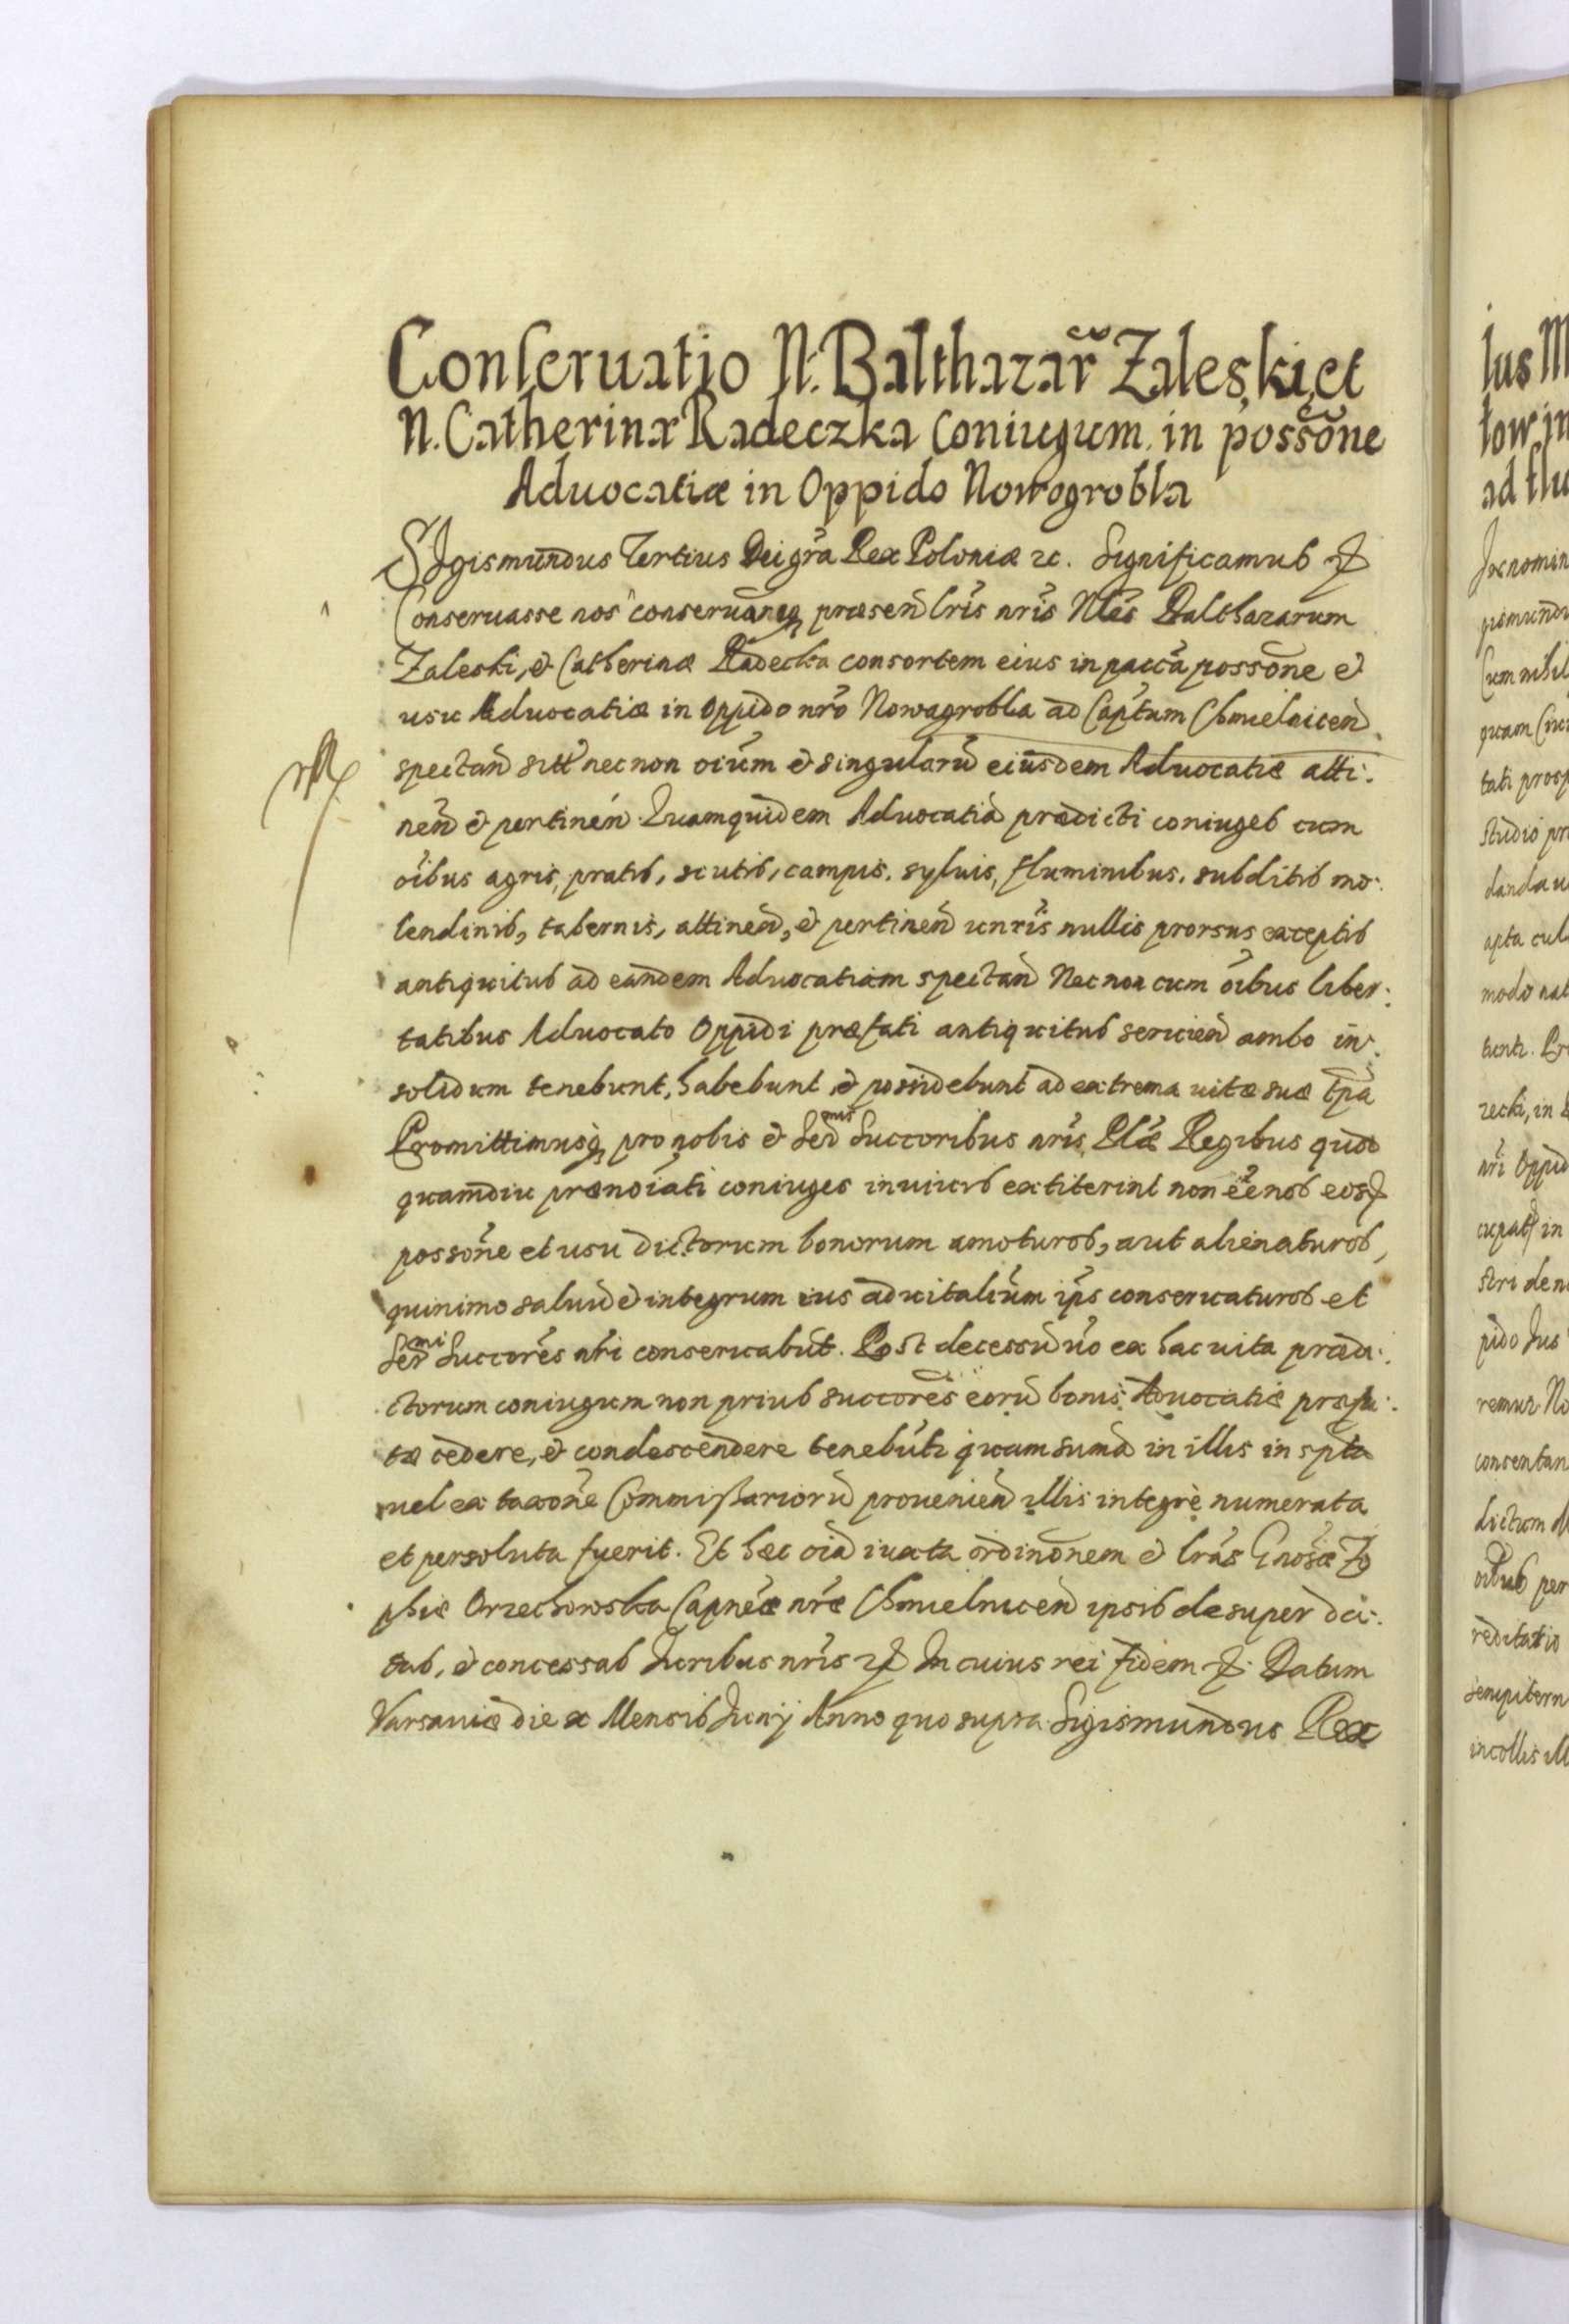 Conseruatio N. Balthazar̃ Zaleski, et
N. Catherinæ Radeczka Coniugum in possõne
Aduocatiæ in Oppido Nowogrobla
SIgismundus Tertius Dei gr̃a Rex Poloniæ &c. Significamus &
Conseruasse nos conseruareq præsen̄ lr̃is nr̃is Nles Balthazarum
Zaleski, & Catherinæ Radecka consortem eius in paccã possõne &
usu Aduocatiæ in Oppido nr̃o Nowagrobla ad Captum Chmelnicen̄
spectan̄ sitt necnon oium & singularū eiusdem Aduocatiæ atti:
nen̄ & pertinen̄. Quamquidem Aduocatiā prædicti coniuges cum
oibus agris, pratis, scutis, campis, syluis, fluminibus, subditis mo:
lendinis, tabernis, attinen̄, & pertinen̄ unr̃is nullis prorsus exceptis
antiquitus ad eandem Aduocatiam spectan̄ Necnon cum oibus liber:
tatibus Aduocato Oppidi præfati antiquitus seruien̄ ambo in:
solidum tenebunt, habebunt & possidebunt ad extrema uitæ suæ tpã
Promittimusq pro nobis & Ser̄mis Succoribus nr̃is Plæ Regibus quod
quamdiu prænoiati coniuges in uiuis extiterint non ẽẽ nos eos &
possõne et usu dictorum bonorum amoturos, aut alienaturos,
quinimo saluū & integrum ius aduitalium ip̃s conseruaturos et
Ser̄mi Succores nr̃i conseruabūt. Post decessū ũo ex hac uita præd:
ctorum coniugum non prius succores eorū bonis Aduocatiæ præfa:
tæ cedere, & condescendere tenebūtr quam sumā in illis inspta
uel ex taxõne Commissariorū prouenien̄ illis integrè numerata
et persoluta fuerit. Et hæc oia iuxta ordinõnem & lr̃as Gnosæ Zo
phiæ Orzechowska Capneæ nr̃æ Chmelnicen̄ ipsis desuper da:
tas, & concessas Iuribus nr̃is & In cuius rei fidem & Datum
Varsauiæ die x Mensis Iunij Anno quo supra Sigismundus Rex
lus M
tow in
ad flu
Cum nihil
quam
studio pr
danda
apta cul
modo nat
zecki, in
nr̃i Oppid
in
pido Jus
remus No
consentan
dictum
per
reditatio
sempitern
incollis ill